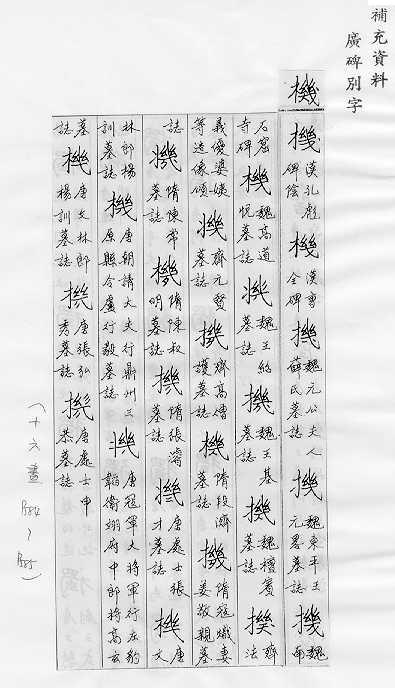 補充資料
廣碑別字
機
機 漢孔彪碑陰 機 漢曹全碑 機 魏元公夫人薛氏墓誌 機 魏東平王元畧墓誌 機 魏甯
石窟寺碑 機 魏高道悅墓誌 機 魏王紹墓誌 機 魏王基墓誌 機 魏檀賓墓誌 機 齊法
義優婆姨等造像頌 機 齊元賢墓誌 機 齊高僧護墓誌 機 隋段濟墓誌 機 隋寇熾妻姜敬親墓
誌 機 隋陳常墓誌 機 隋陳叔明墓誌 機 隋張濬墓誌 機 唐處士張才墓誌 機 唐文
林郎楊訓墓誌 機 唐朝請大夫行鼎州三原縣令盧行毅墓誌 機 唐冠軍大將軍行左豹韜衛翊府中郎將高玄
墓誌 機 唐文林郎楊訓墓誌 機 唐張弘秀墓誌 機 唐處士申恭墓誌
(十六畫